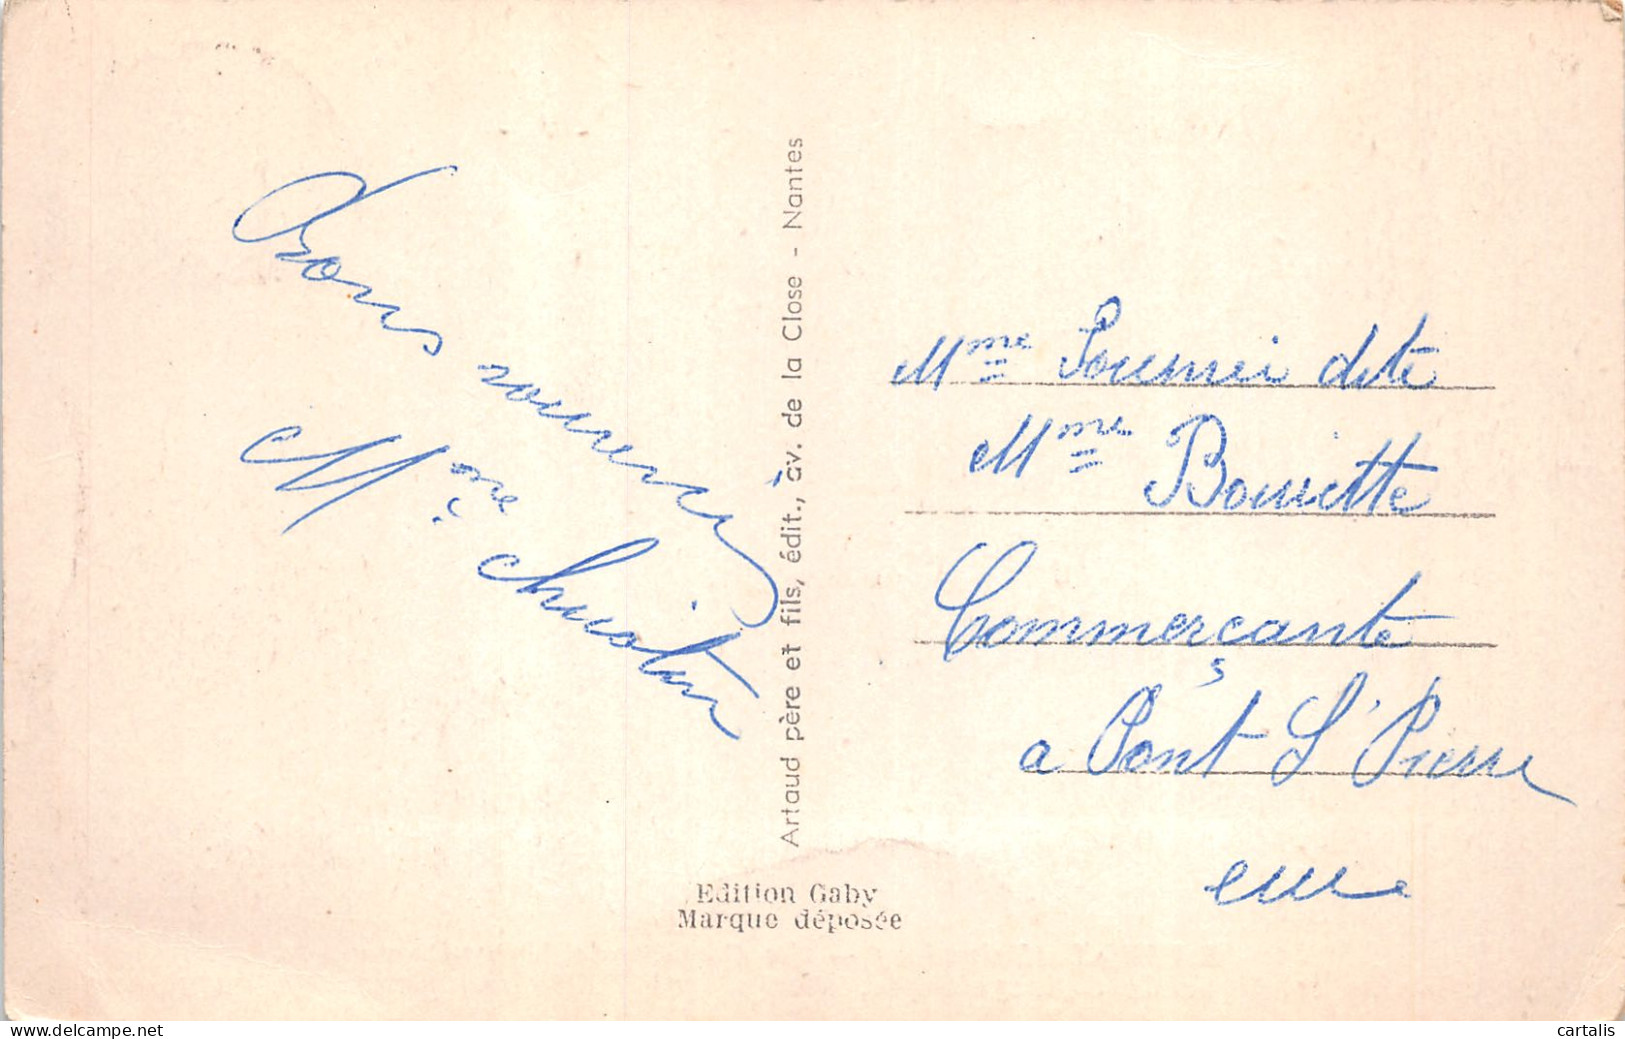 Bons souvenir
Mme
Artaud père et fils, édit., av. de la Close - Nantes
Edition Gaby
Marque déposée
Mme dite
Mme
Commerçante
a Pont St Pierre
eure
www.delcampe.net
cartalis